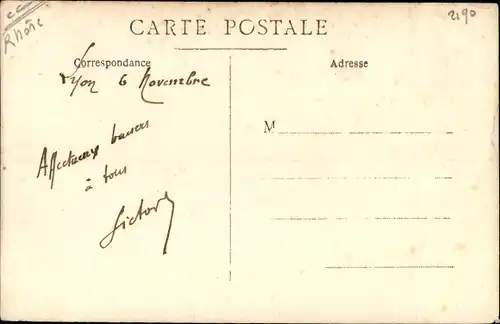 Rhône
2190
CARTE POSTALE
Correspondance
Adresse
Lyon 6 Novembre
M
Affectueux baisers
à tous
Victor